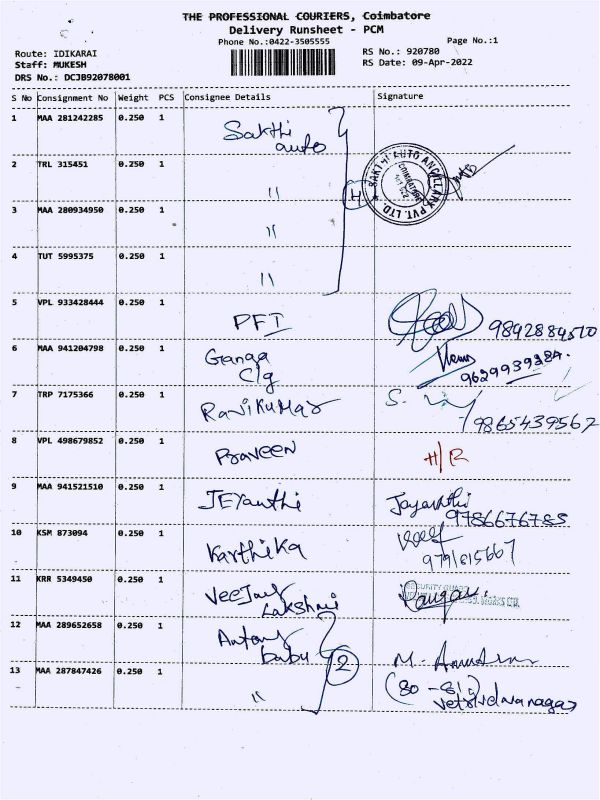 THE PROFESSIONAL COURIERS, Coimbatore
Delivery Runsheet - PCM
Phone No.:0422-3505555
Page No.:1
Route: IDIKARAI
Staff: MUKESH
DRS No.: DCJB92078001
RS No.: 920780
RS Date: 09-Apr-2022
S No Consignment No Weight PCS Consignee Details Signature
1 MAA 281242285 0.250 1 Sakthi
auto
2 TRL 315451 0.250 1 "
4
SAKTHI AUTO ANCILLARY PVT. LTD.
COIMBATORE
3 MAA 280934950 0.250 1 "
4 TUT 5995375 0.250 1 "
5 VPL 933428444 0.250 1 PFI 9842884510
6 MAA 941204798 0.250 1 Ganga
C/g 9629939284.
7 TRP 7175366 0.250 1 Ravikumar S.
9865439567
8 VPL 498679852 0.250 1 Praveen H/R
9 MAA 941521510 0.250 1 JEYanthi Jayanthi
9786676785
10 KSM 873094 0.250 1 Karthika
979/615667
11 KRR 5349450 0.250 1 Veejay
Lakshmi
SECURITY GUARD
12 MAA 289652658 0.250 1 Antony
babu
2
M.
13 MAA 287847426 0.250 1 "
(80 -81)